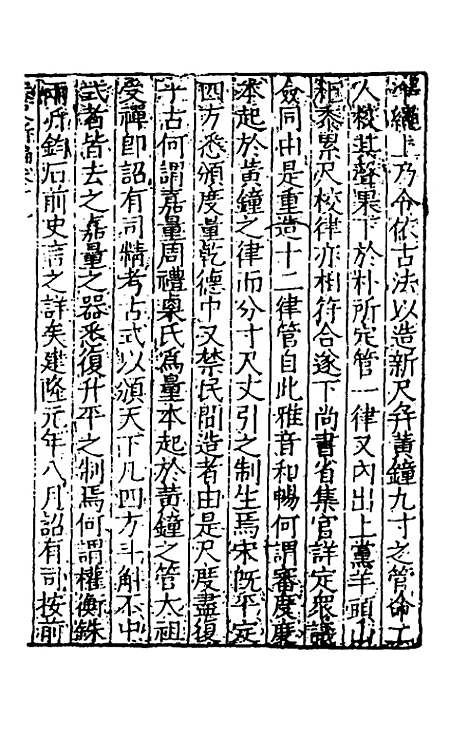 準繩上乃令依古法以造新尺并黃鐘九寸之管命工
人校其聲果下於朴所定管一律又內出上黨羊頭山
秬黍累尺校律亦相符合遂下尚書省集官詳定衆議
僉同由是重造十二律管自此雅音和暢何謂審度度
本起於黃鐘之律而分寸尺丈引之制生焉宋旣平定
四方悉頒度量乾德中又禁民間造者由是尺度盡復
于古何謂嘉量周禮㮚氏爲量本起於黃鐘之管太祖
受禪卽詔有司精考古式以頒天下凡四方斗斛不中
式者皆去之嘉量之器悉復升平之制焉何謂權衡銖
兩斤鈞石前史言之詳矣建隆元年八月詔有司按前